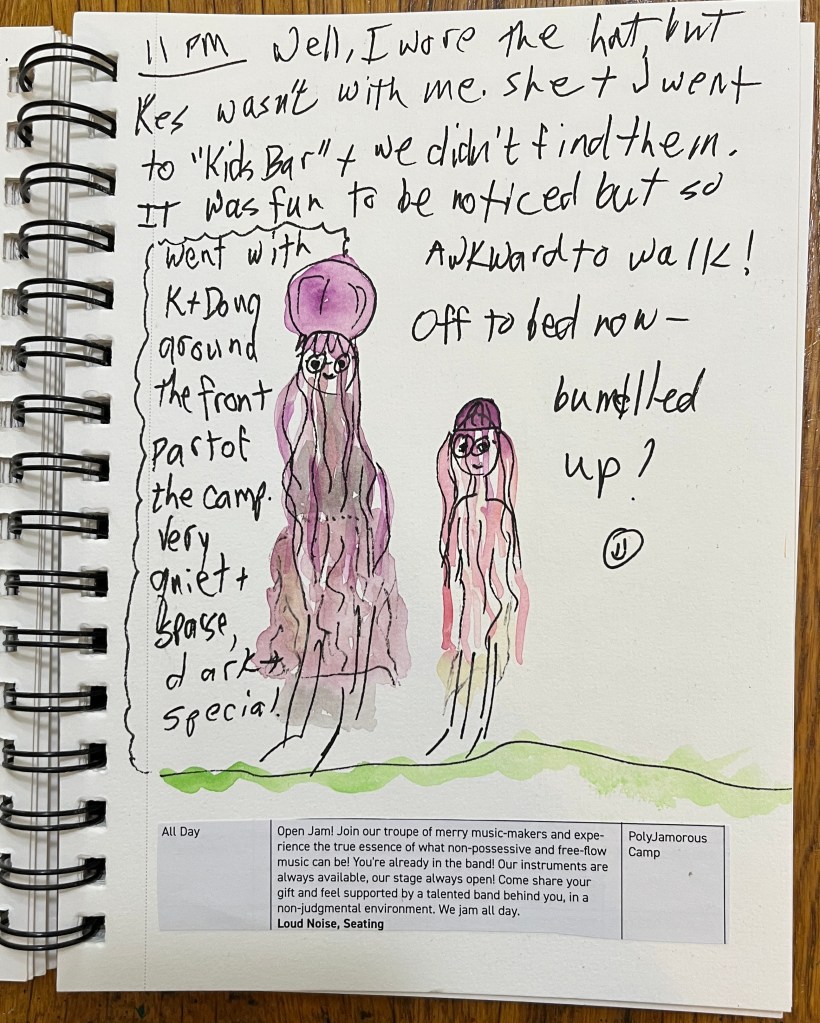 11 PM Well, I wore the hat, but
Kes wasn't with me. She + I went
to "Kids Bar" + we didn't find them.
It was fun to be noticed but so
Awkward to walk!
Off to bed now –
bundled
up!
went with
K + Doug
around
the front
part of
the camp.
Very
quiet +
sparse,
dark +
special
All Day
Open Jam! Join our troupe of merry music-makers and expe-
rience the true essence of what non-possessive and free-flow
music can be! You're already in the band! Our instruments are
always available, our stage always open! Come share your
gift and feel supported by a talented band behind you, in a
non-judgmental environment. We jam all day.
Loud Noise, Seating
PolyJamorous
Camp